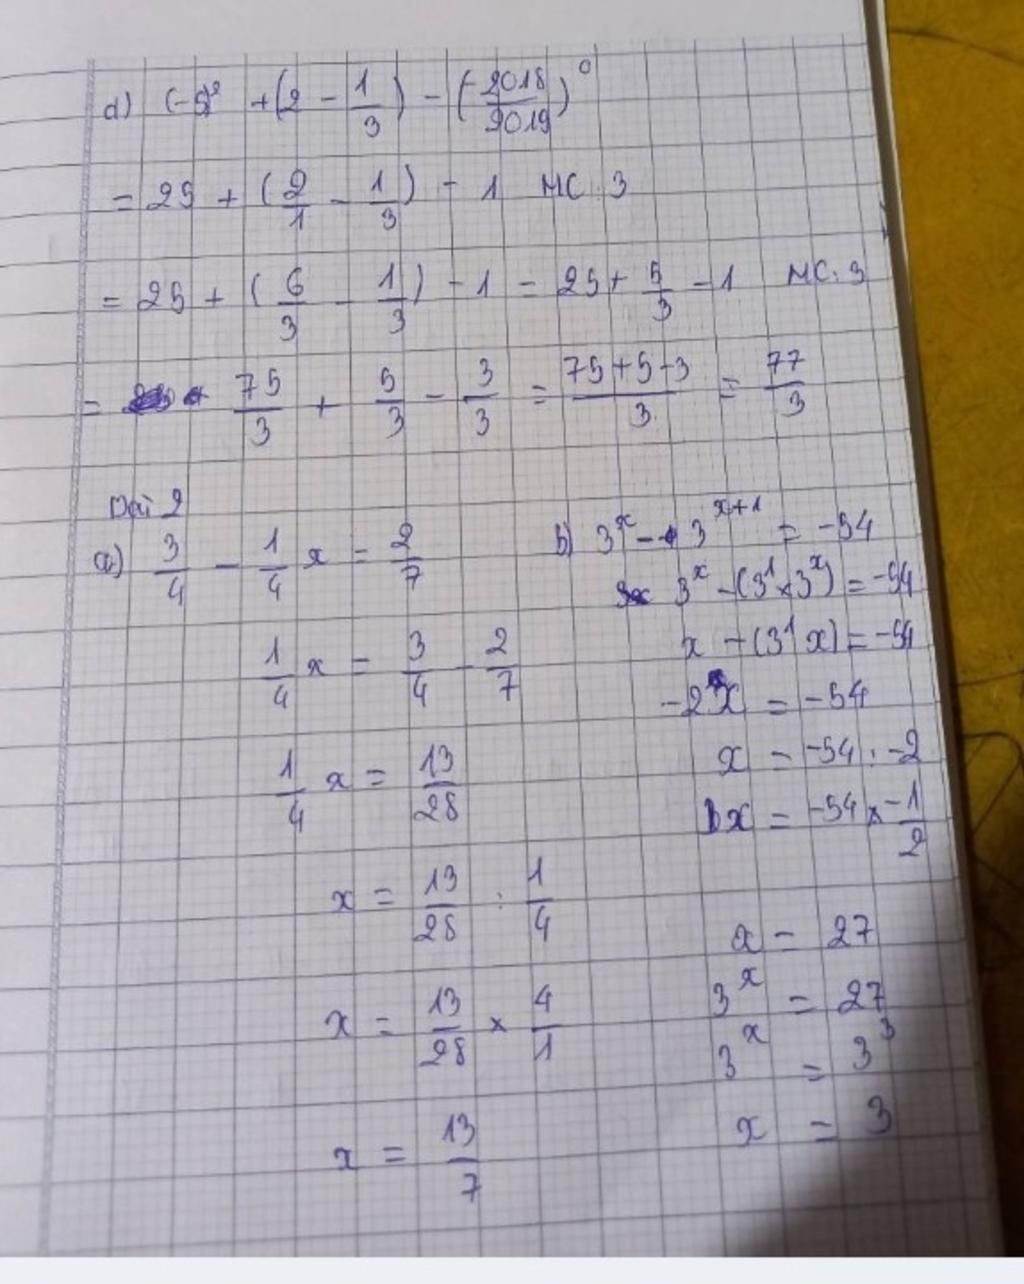 d) (-5)² + (2 - 1/3) - (-2018/2019)⁰
= 25 + (2/1 - 1/3) - 1 MC: 3
= 25 + (6/3 - 1/3) - 1 = 25 + 5/3 - 1 MC: 3
= 75/3 + 5/3 - 3/3 = (75+5-3)/3 = 77/3
Bài 2
a) 3/4 - 1/4 x = 2/7
1/4 x = 3/4 - 2/7
1/4 x = 13/28
x = 13/28 : 1/4
x = 13/28 × 4/1
x = 13/7
b) 3ˣ - 3ˣ⁺¹ = -54
3ˣ - (3¹ × 3ˣ) = -54
x - (3¹ x) = -54
-2 x = -54
x = -54 : -2
x = -54 × -1/2
x = 27
3ˣ = 27
3ˣ = 3³
x = 3